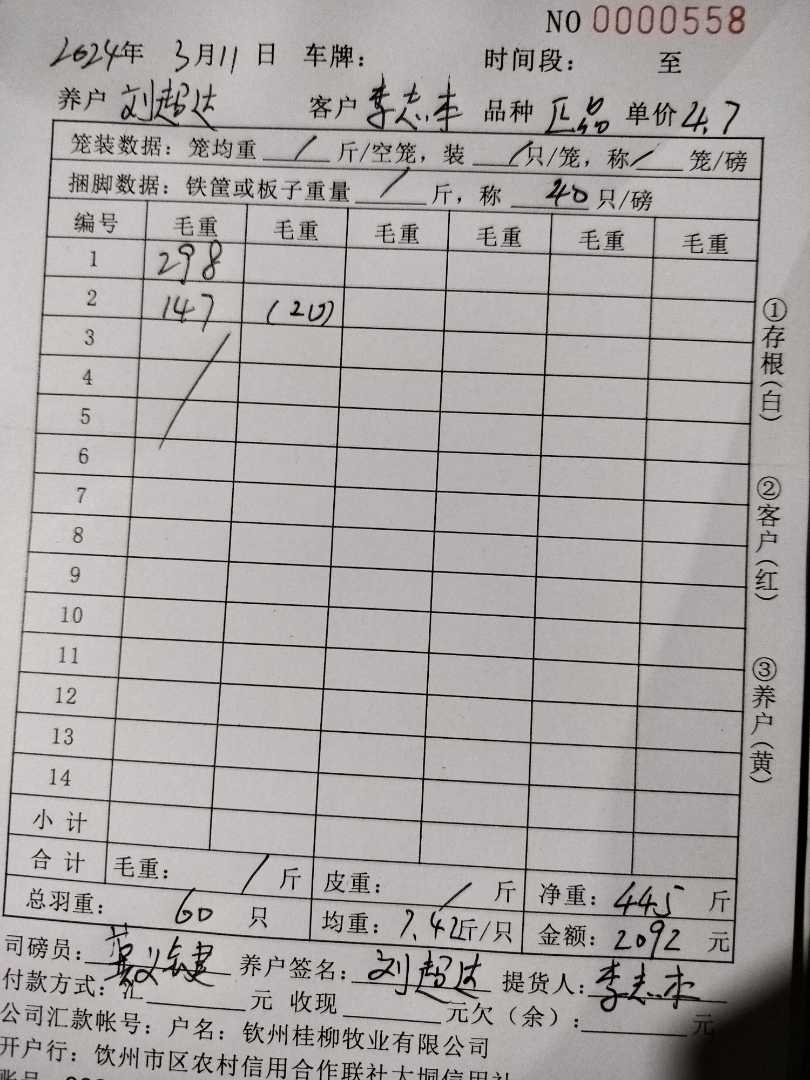 NO 0000558
2024年 3月11日 车牌： 时间段： 至
养户 刘超达 客户 李志杰 品种 正品 单价 4.7
笼装数据：笼均重 / 斤/空笼，装 / 只/笼，称 / 笼/磅
捆脚数据：铁筐或板子重量 / 斤，称 40 只/磅
编号 毛重 毛重 毛重 毛重 毛重 毛重
1 298
2 147 (20)
3
4
5
6
7
8
9
10
11
12
13
14
小计
合计 毛重： / 斤 皮重： / 斤 净重：445 斤
总羽重： 60 只 均重：7.42斤/只 金额：2092 元
司磅员： 养户签名：刘超达 提货人：李志杰
付款方式：汇 元 收现 元欠（余）： 元
公司汇款帐号：户名：钦州桂柳牧业有限公司
开户行：钦州市区农村信用合作联社大垌信用社
①存根(白)
②客户(红)
③养户(黄)